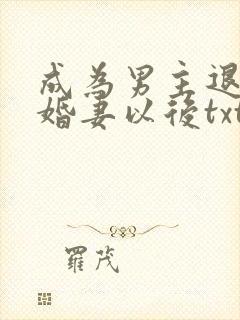 成為男主退
婚妻以後txt
羅茂